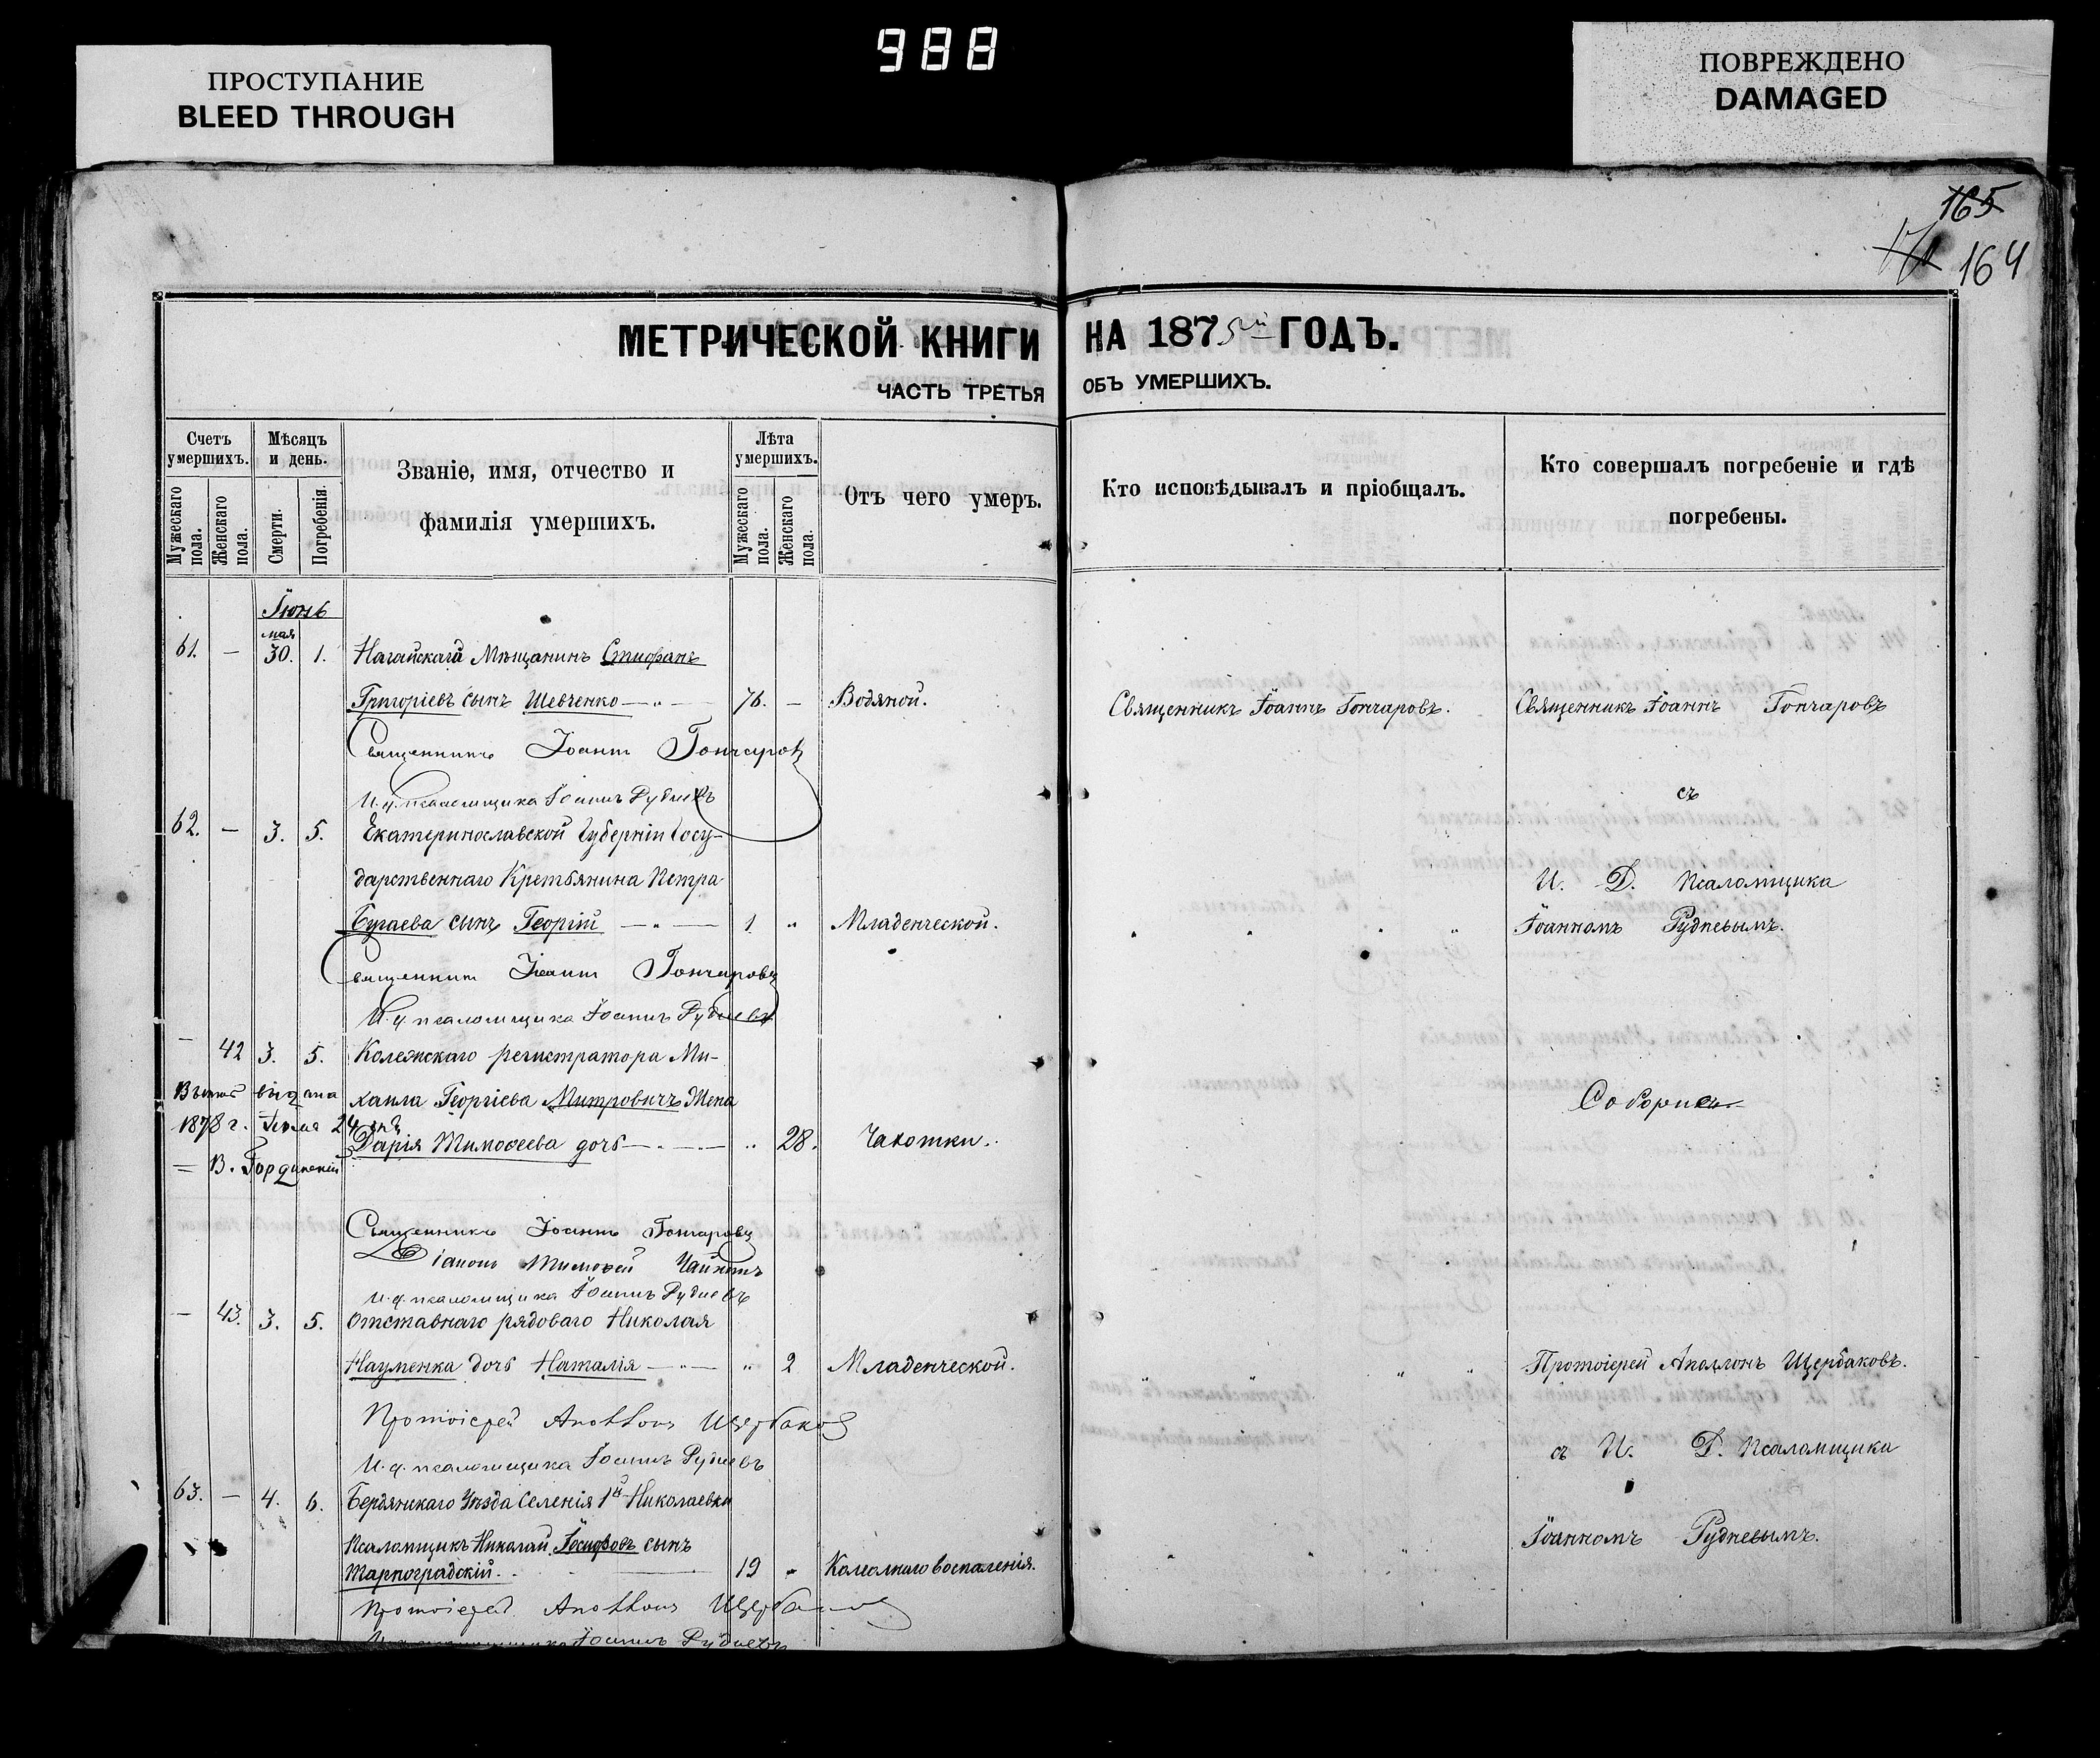 988
ПРОСТУПАНИЕ
BLEED THROUGH
ПОВРЕЖДЕНО
DAMAGED
165
164
МЕТРИЧЕСКОЙ КНИГИ НА 1875й ГОДЪ.
ЧАСТЬ ТРЕТЬЯ ОБЪ УМЕРШИХЪ.
Счетъ умершихъ.
Мужескаго пола.
Женскаго пола.
Мѣсяцъ и день.
Смерти.
Погребенія.
Званіе, имя, отчество и
фамилія умершихъ.
Лѣта умершихъ.
Мужескаго пола.
Женскаго пола.
Отъ чего умеръ.
Кто исповѣдывалъ и пріобщалъ.
Кто совершалъ погребеніе и гдѣ
погребены.
Іюнь
мая
61. — 30. 1. Нагайскага Мѣщанинъ Стиофанъ
Григоріевъ сынъ Шевченко — 76. — Водяной. Священникъ Іоаннъ Гончаровъ. Священникъ Іоаннъ Гончаровъ
Священникъ Іоаннъ Гончаровъ
И. д. псаломщика Іоаннъ Рудневъ
съ
62. — 3. 5. Екатеринославской Губерніи Госу-
дарственнаго Крестьянина Петра
И. Д. Псаломщика
Бугаева сынъ Георгій — 1 " Младенческой. Іоанномъ Рудневымъ.
Священникъ Іоаннъ Гончаровъ
И. д. псаломщика Іоаннъ Рудневъ
— 42 3. 5. Колежскаго регистратора Ми-
хаила Георгіева Митровичъ Жена
выдана
1878 г. 24 дня
Дарія Тимофеева дочь — " 28. Чахотки.
Соборнѣ
= В. Гординскій
Священникъ Іоаннъ Гончаровъ
Діаконъ Тимофей Чайкинъ
И. д. псаломщика Іоаннъ Рудневъ
— 43. 3. 5. Отставнаго рядоваго Николая
Науменка дочь Наталія — " 2 Младенческой. Протоіерей Аполлонъ Щербаковъ.
Протоіерей Аполлонъ Щербаковъ
съ И. Д. Псаломщика
И. д. псаломщика Іоаннъ Рудневъ
63. — 4. 6. Бердянскаго Уѣзда Селенія 1й Николаевки
Псаломщикъ Николай Іосифовъ сынъ
Іоанномъ Рудневымъ.
Тарноградскій. 19 " воспаленія.
Протоіерей Аполлонъ
И. д. псаломщика Іоаннъ Рудневъ